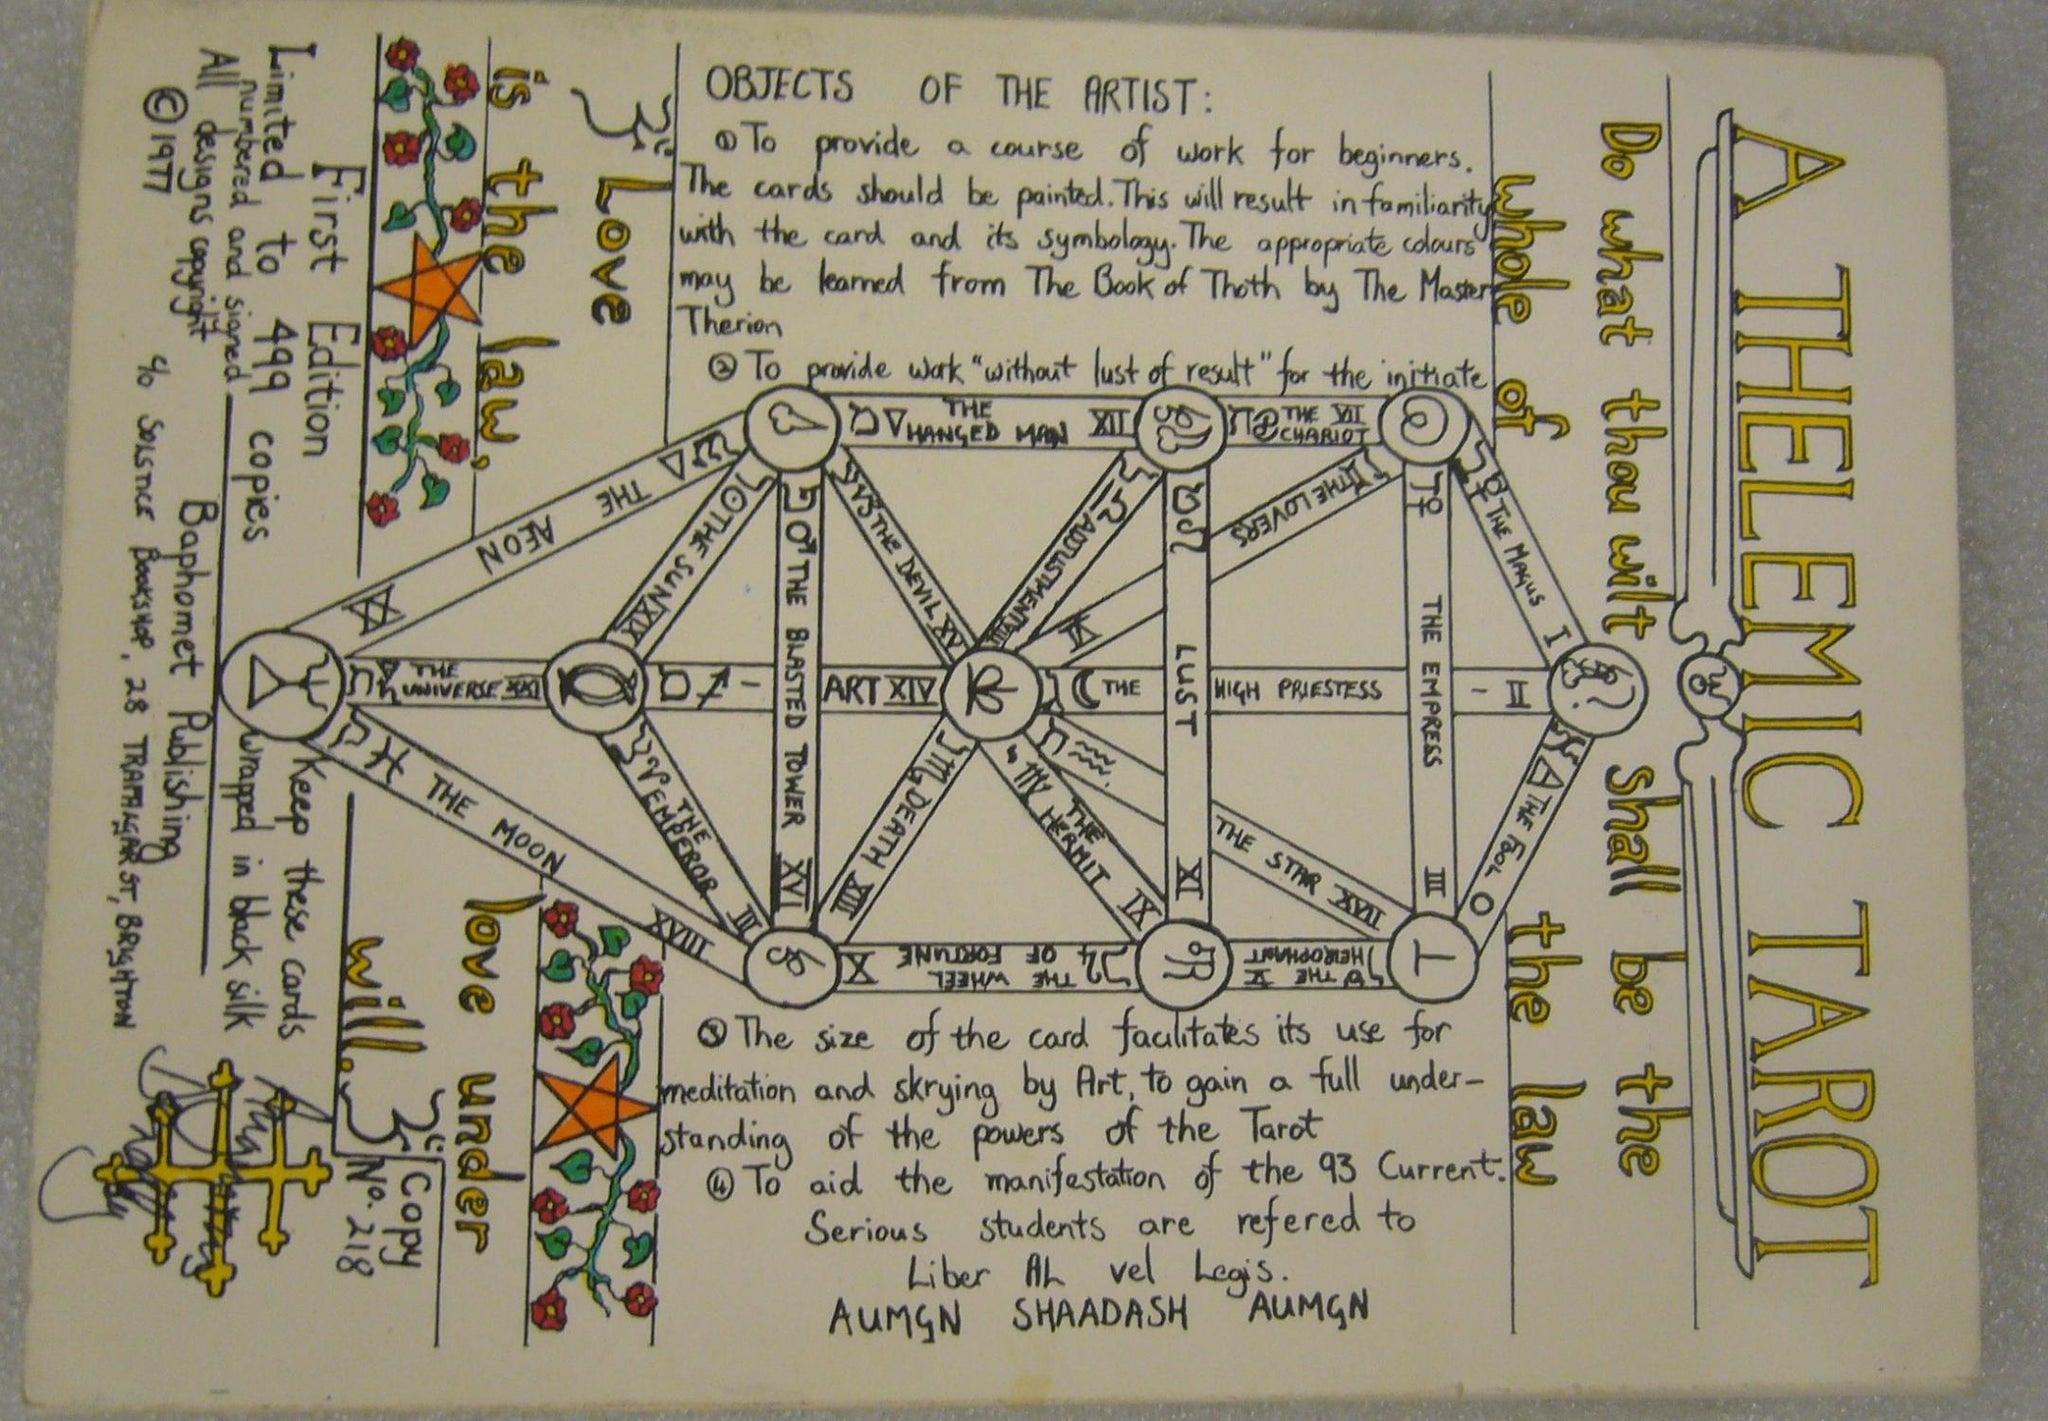 A THELEMIC TAROT
Do what thou wilt shall be the
whole of the law
OBJECTS OF THE ARTIST:
① To provide a course of work for beginners.
The cards should be painted. This will result in familiarity
with the card and its symbology. The appropriate colours
may be learned from The Book of Thoth by The Master
Therion
② To provide work "without lust of result" for the initiate
THE FOOL O
THE MAGUS I
THE HIGH PRIESTESS II
THE EMPRESS III
THE HEIROPHANT V
THE LOVERS VI
THE VII
CHARIOT
LUST XI
ADDJUSTMENT VIII
THE HERMIT IX
THE WHEEL
OF FORTUNE X
THE
HANGED MAN XII
DEATH XIII
ART XIV
THE DEVIL XV
THE BLASTED TOWER XVI
THE STAR XVII
THE MOON XVIII
THE SUN XIX
THE AEON XX
THE
UNIVERSE XXI
THE
EMPEROR III
③ The size of the card facilitates its use for
meditation and skrying by Art, to gain a full under-
standing of the powers of the Tarot
④ To aid the manifestation of the 93 Current.
Serious students are refered to
Liber AL vel Legis.
AUMGN SHAADASH AUMGN
Love
is the law,
love under
will.
First Edition
Limited to 499 copies
numbered and signed
All designs copyright
© 1977
Keep these cards
wrapped in black silk
Copy
No. 218
Baphomet Publishing
c/o SOLSTICE BOOKSHOP, 28 TRAFALGAR ST, BRIGHTON